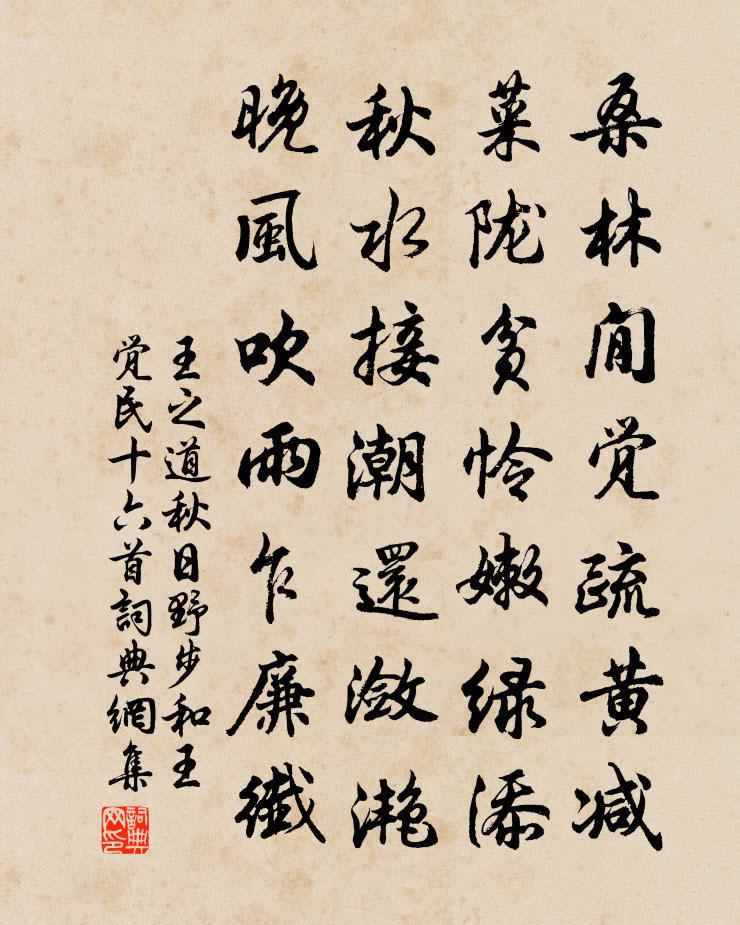 桑林閒覺疏黄减
菜陇貧怜嫩緑添
秋水接潮還潋滟
晚風吹雨乍廉纖
王之道秋日野步和王
覺民十六首詞典網集
詞典网印